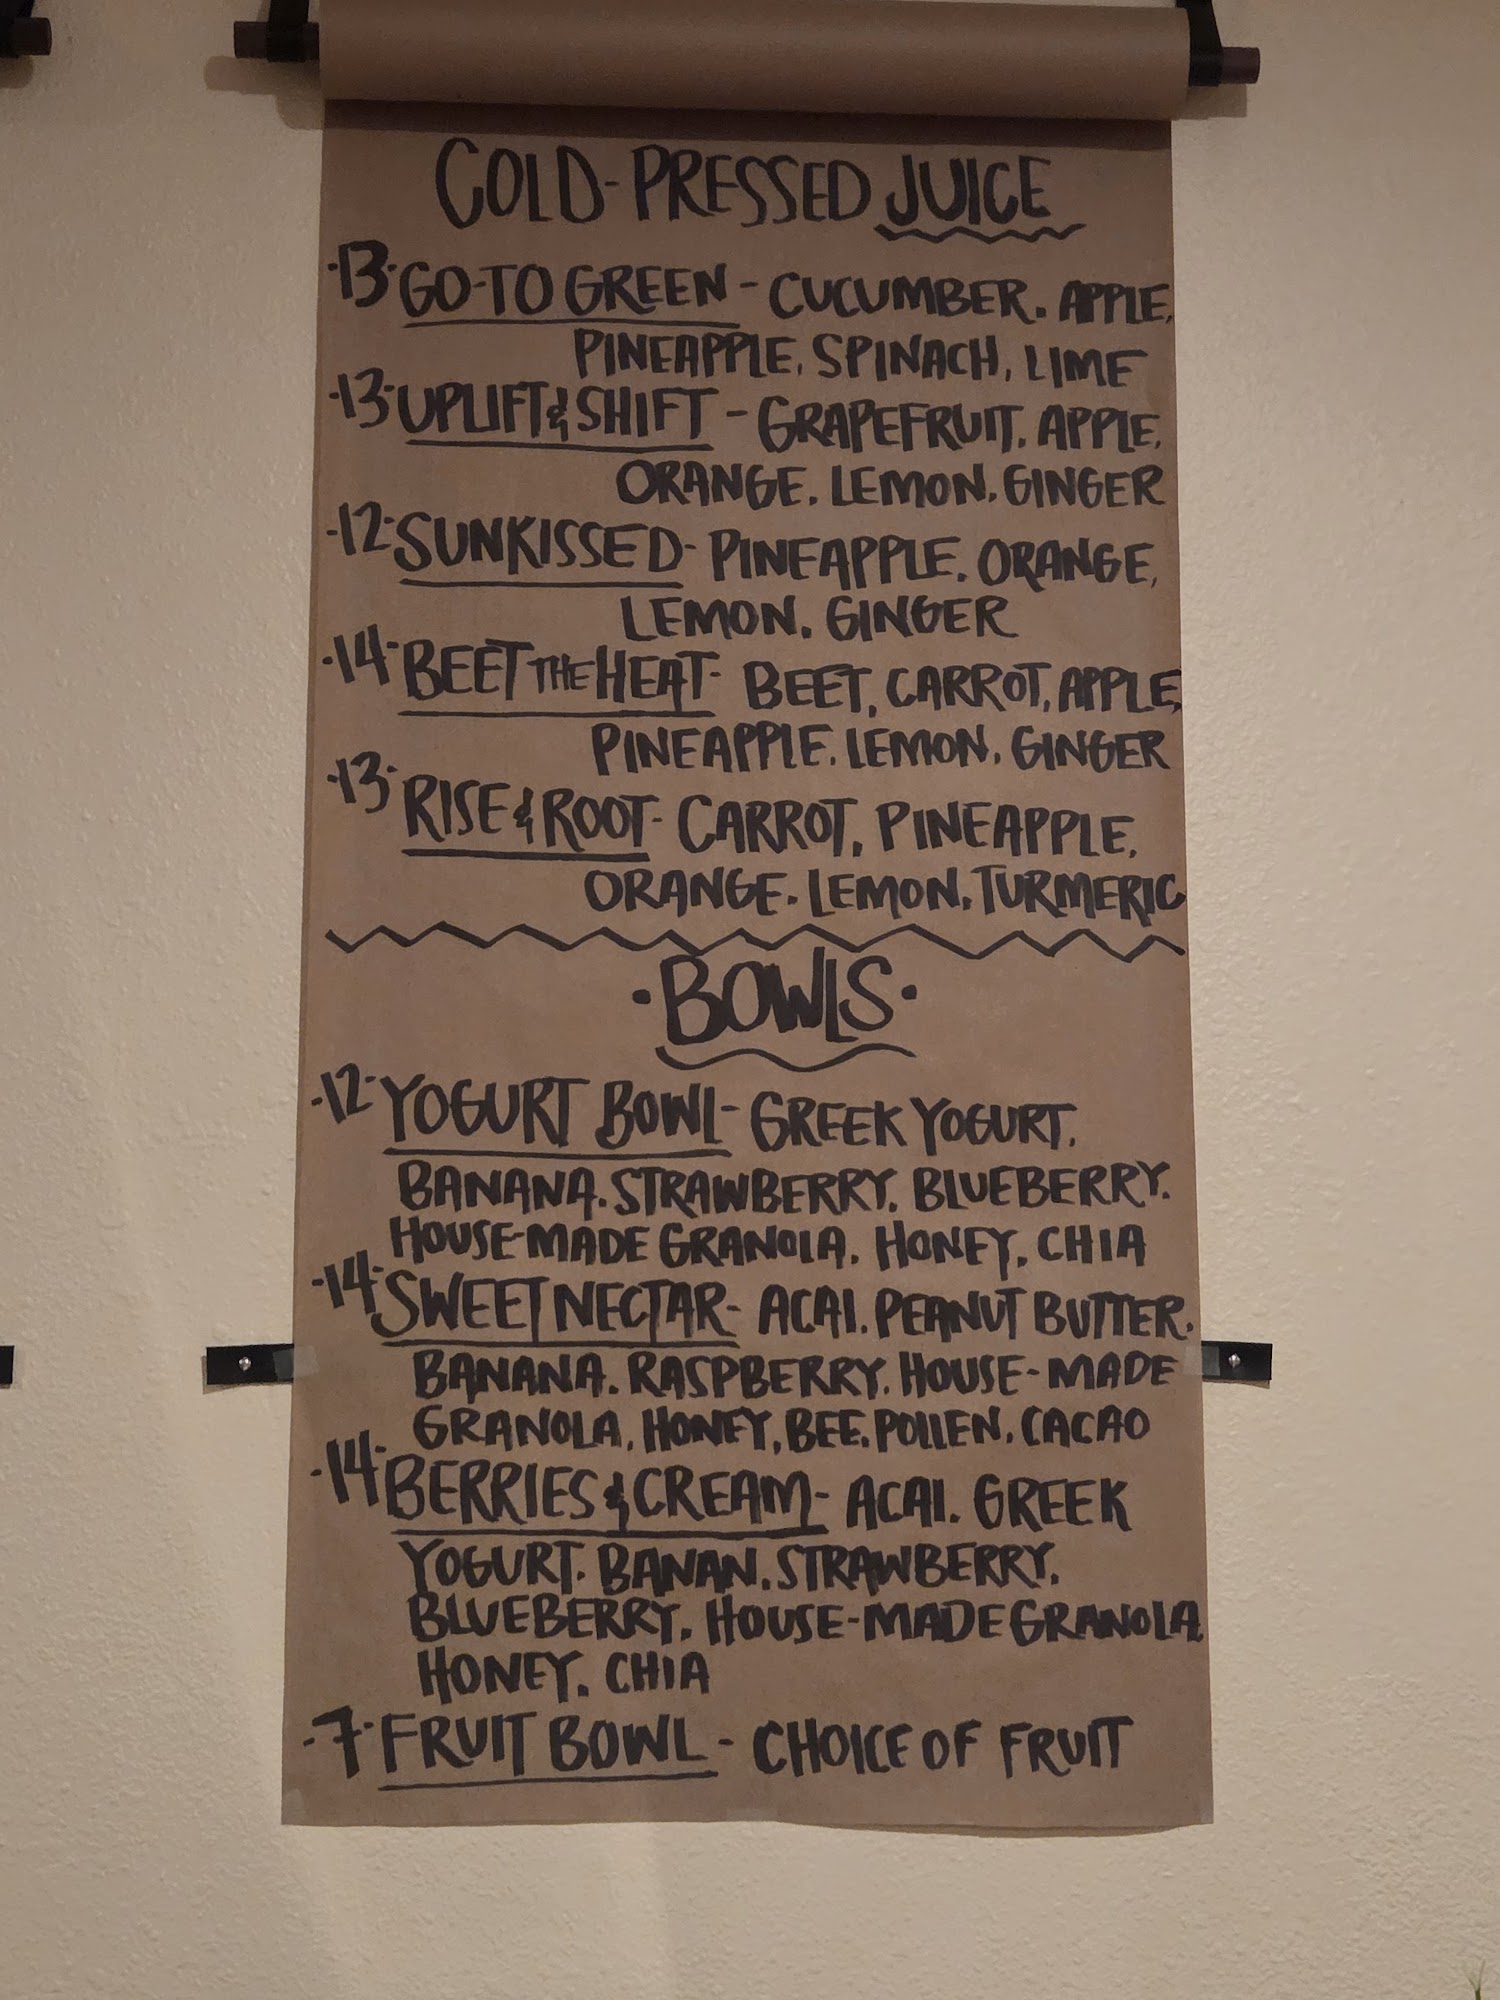 COLD-PRESSED JUICE
·13· GO-TO GREEN - CUCUMBER. APPLE,
PINEAPPLE, SPINACH, LIME
·13· UPLIFT & SHIFT - GRAPEFRUIT. APPLE,
ORANGE. LEMON. GINGER
·12· SUNKISSED - PINEAPPLE. ORANGE,
LEMON. GINGER
·14· BEET THE HEAT - BEET, CARROT, APPLE,
PINEAPPLE. LEMON. GINGER
·13· RISE & ROOT - CARROT, PINEAPPLE,
ORANGE. LEMON. TURMERIC
·BOWLS·
·12· YOGURT BOWL - GREEK YOGURT.
BANANA. STRAWBERRY. BLUEBERRY.
HOUSE-MADE GRANOLA. HONEY, CHIA
·14· SWEET NECTAR - ACAI. PEANUT BUTTER.
BANANA. RASPBERRY. HOUSE-MADE
GRANOLA, HONEY, BEE. POLLEN. CACAO
·14· BERRIES & CREAM - ACAI. GREEK
YOGURT. BANAN. STRAWBERRY.
BLUEBERRY. HOUSE-MADE GRANOLA.
HONEY. CHIA
·7· FRUIT BOWL - CHOICE OF FRUIT